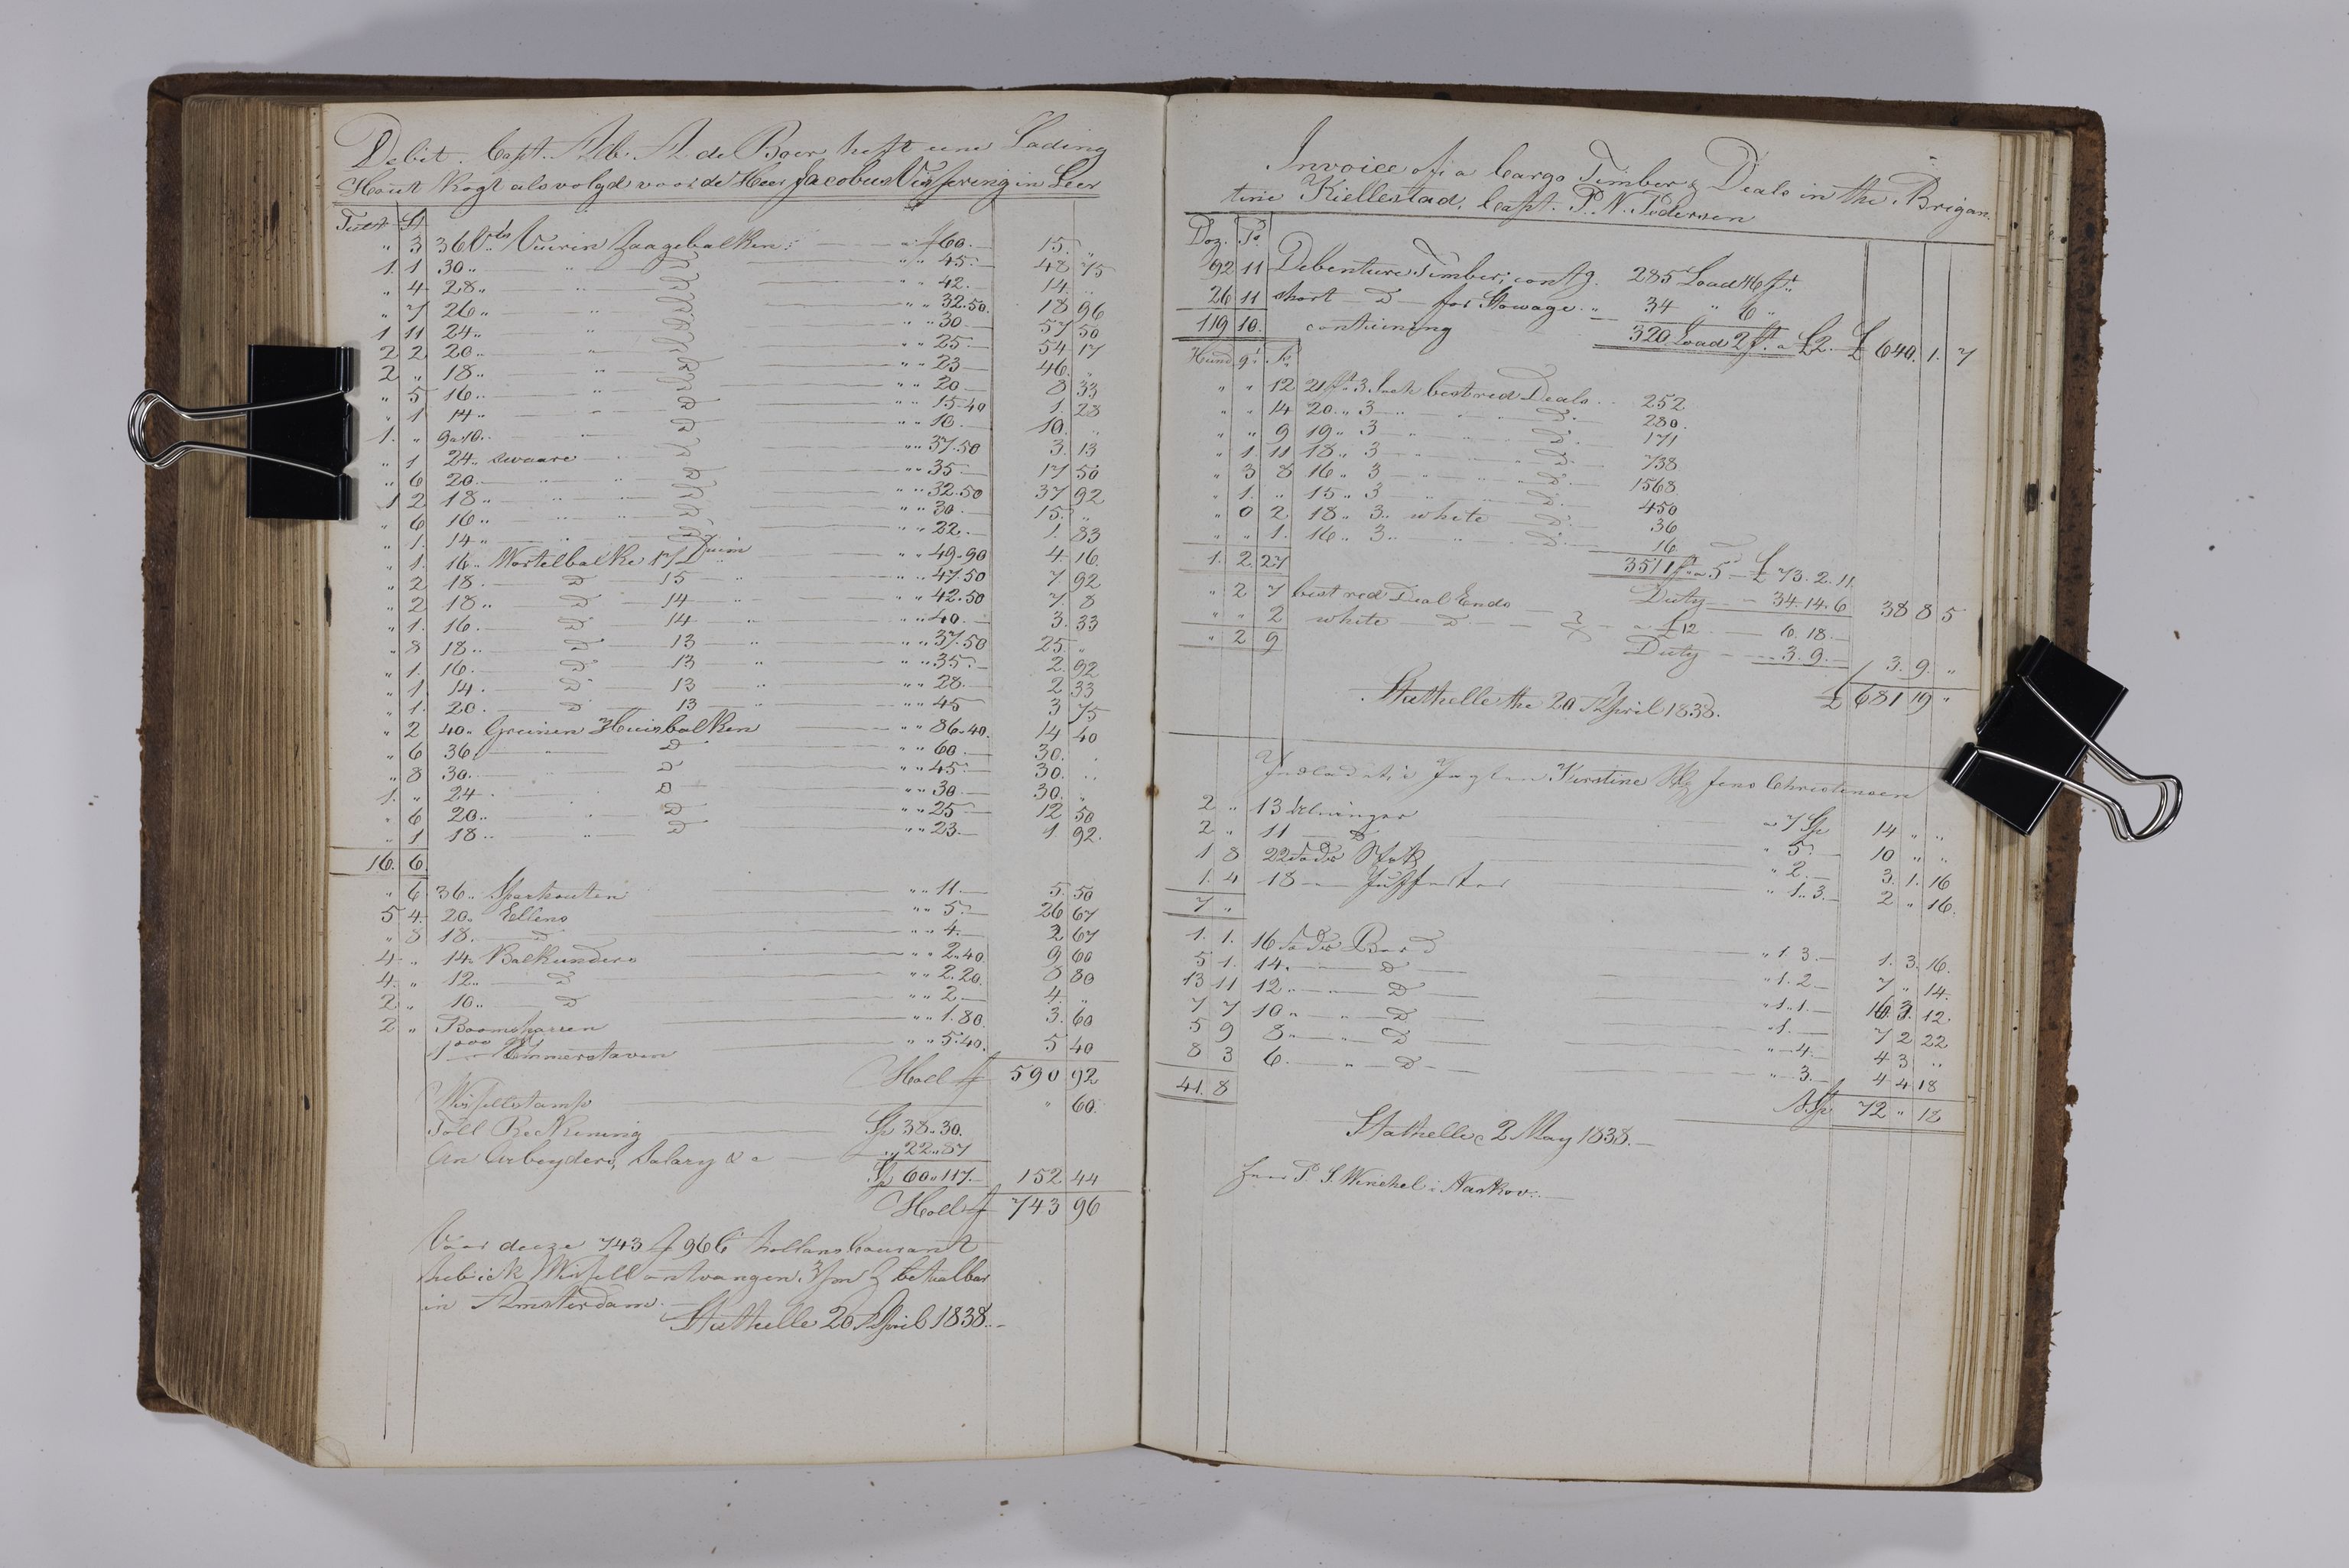 Debit. Capt. Alb. A. de Boer heft eene Lading
Hout Kogt als volgd voor de Heer Jacobus Vissering in Leer
Tult St
" 3 36 Vts Vuiren Zaagebalken " f 60.— 15. "
1. 1 30 " " D " " 45.— 48 75
" 4 28 " " D " " 42.— 14. "
" 7 26 " " D " " 32.50. 18 96
1 11 24 " " D " " 30 — 57 50
2 2 20 " " D " " 25 — 54 17
2 " 18 " " D " " 23 — 46. "
" 5 16 " " D " " 20 8 33
" 1 14 " " D " " 15.40 1. 28
1. " 9 a 10 " " D " " 10.— 10. "
" 1 24 " swaare D " " 37.50 3. 13
" 6 20 " " D " " 35 — 17 50
1 2 18 " " D " " 32.50 37 92
" 6 16 " " D " " 30 — 15. "
" 1. 14 " " D " " 22.— 1. 83
" 1. 16 " Wortelbalke 17 Duim " " 49.90 4 16.
" 2 18. D 15 " " " 47.50 7. 92
" 2 18 " D 14 " " " 42.50 7. 8
" 1. 16. D 14 " " " 40.— 3. 33
" 8 18 " D 13 " " " 37.50 25. "
" 1. 16. D 13 " " " 35.— 2. 92
" 1. 14. D 13 " " " 28.— 2 33
" 1. 20. D 13 " " " 45 3 75
" 2 40 " Greinen Huisbalken " " 86.40. 14 40
" 6 36 " D " " 60.— 30. "
" 8 30. D " " 45.— 30. "
1. " 24. D " " 30 — 30. "
" 6 20 " D " " 25 — 12 50
" 1 18 " D " " 23 — 1 92.
16. 6
" 6 36 " Sparhouten " " 11.— 5. 50
5 4. 20 " Ellens " " 5.— 26 67
" 8 18. D " " 4.— 2. 67
4 " 14 " Balkunders " " 2.40. 9 60
4. " 12 " D " " 2.20. 8 80
2 " 10 " D " " 2 — 4. "
2 " Boomsparren " " 1.80. 3. 60
1000 Emmerstaven " " 5.40. 5 40
Holl f 590 92
Wisselstamp " 60.
Toll Reckening Sp 38.30.
An Arbeyders, Salary &c " 22.87
Sp 60.117. 152 44
Holl f 743 96
Voor deeze 743 f 96 C hollans Courant
heb ick Wissell ontvangen, betaalbar
in Amsterdam. —
Stathelle 20 April 1838. —
Invoice of a Cargo Timber & Deals in the Brigan
tine Kiellestad, Capt. P. N. Pedersen
Doz. Ps
92 11 Debenture Timber; contg. 285 Load 46 ft "
26 11 short — D — for Stowage " 34 " 6 "
119 10. containing 320 Load 2 ft a £2. £ 640. 1. 7
Hund qr. Ps
" " 12 21 ft 3 Inch best red Deals 252
" " 14 20 " 3 — " D. 280.
" " 9 19 " 3 — " D. 171
" 1. 11 18 " 3 " D. 738
" 3 8 16 " 3 " D. 1568.
" 1. " 15 " 3 " D. 450
" 0 2. 18 " 3. white D. 36
" " 1. 16 " 3. " D. 16
1. 2 27 3511 ft a 5 — £ 73. 2. 11.
Duty — 34. 14. 6 38 8 5
" 2 7 best red Deal Ends
" " 2 white — D — a £12 — 6. 18.—
" 2 9 Duty — 3. 9.— 3. 9. "
Stathelle the 20 April 1838. £ 681 19 "
Indladet i Jagten Kirstine Jens Christensen
2 " 13 Alninger " 7 Sp 14 " "
2 " 11 — D " 5.— 10 " "
1 8 22 Fods Stok " 2.— 3. 1. 16
1. 4 18 — Juffertar " 1. 3.— 2 " 16.
7 "
1. 1. 16 Fods Bord " 1 3.— 1. 3. 16.
5 1. 14. D " 1. 2 — 7 " 14.
13 11 12 " D " 1. 1.— 16. 3. 12
7 7 10 " D " 1.— 7 2 22
5 9 8 " D " 4.— 4 3 "
8 3 6. " D " 3.— 4 4 18
41. 8 Sp 72 " 18
Stathelle 2 May 1838. —
P. S. Winckel i Naskov. —